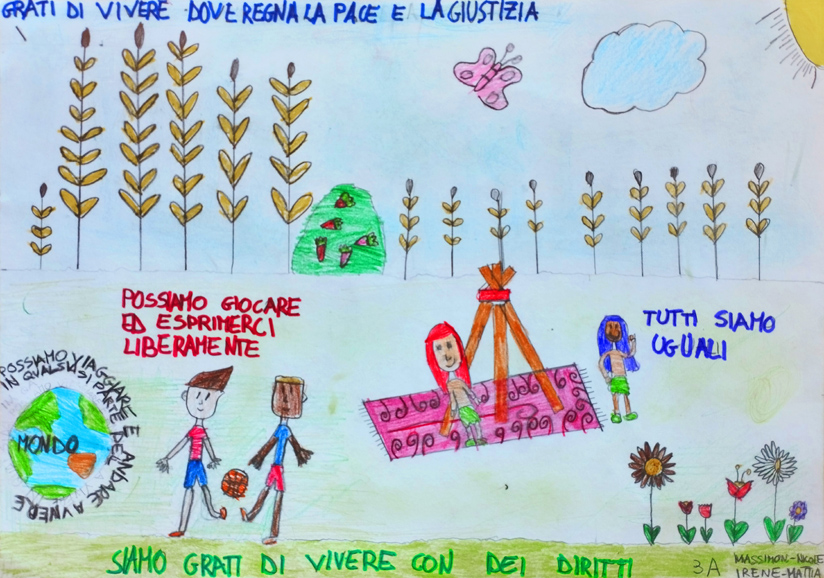 GRATI DI VIVERE DOVE REGNA LA PACE E LA GIUSTIZIA
POSSIAMO GIOCARE
ED ESPRIMERCI
LIBERAMENTE
TUTTI SIAMO
UGUALI
POSSIAMO VIAGGIARE E ANDARE
IN PARTE DEL
MONDO
SIAMO GRATI DI VIVERE CON DEI DIRITTI
3A
MASSIMO NICOLE
IRENE-MATTIA